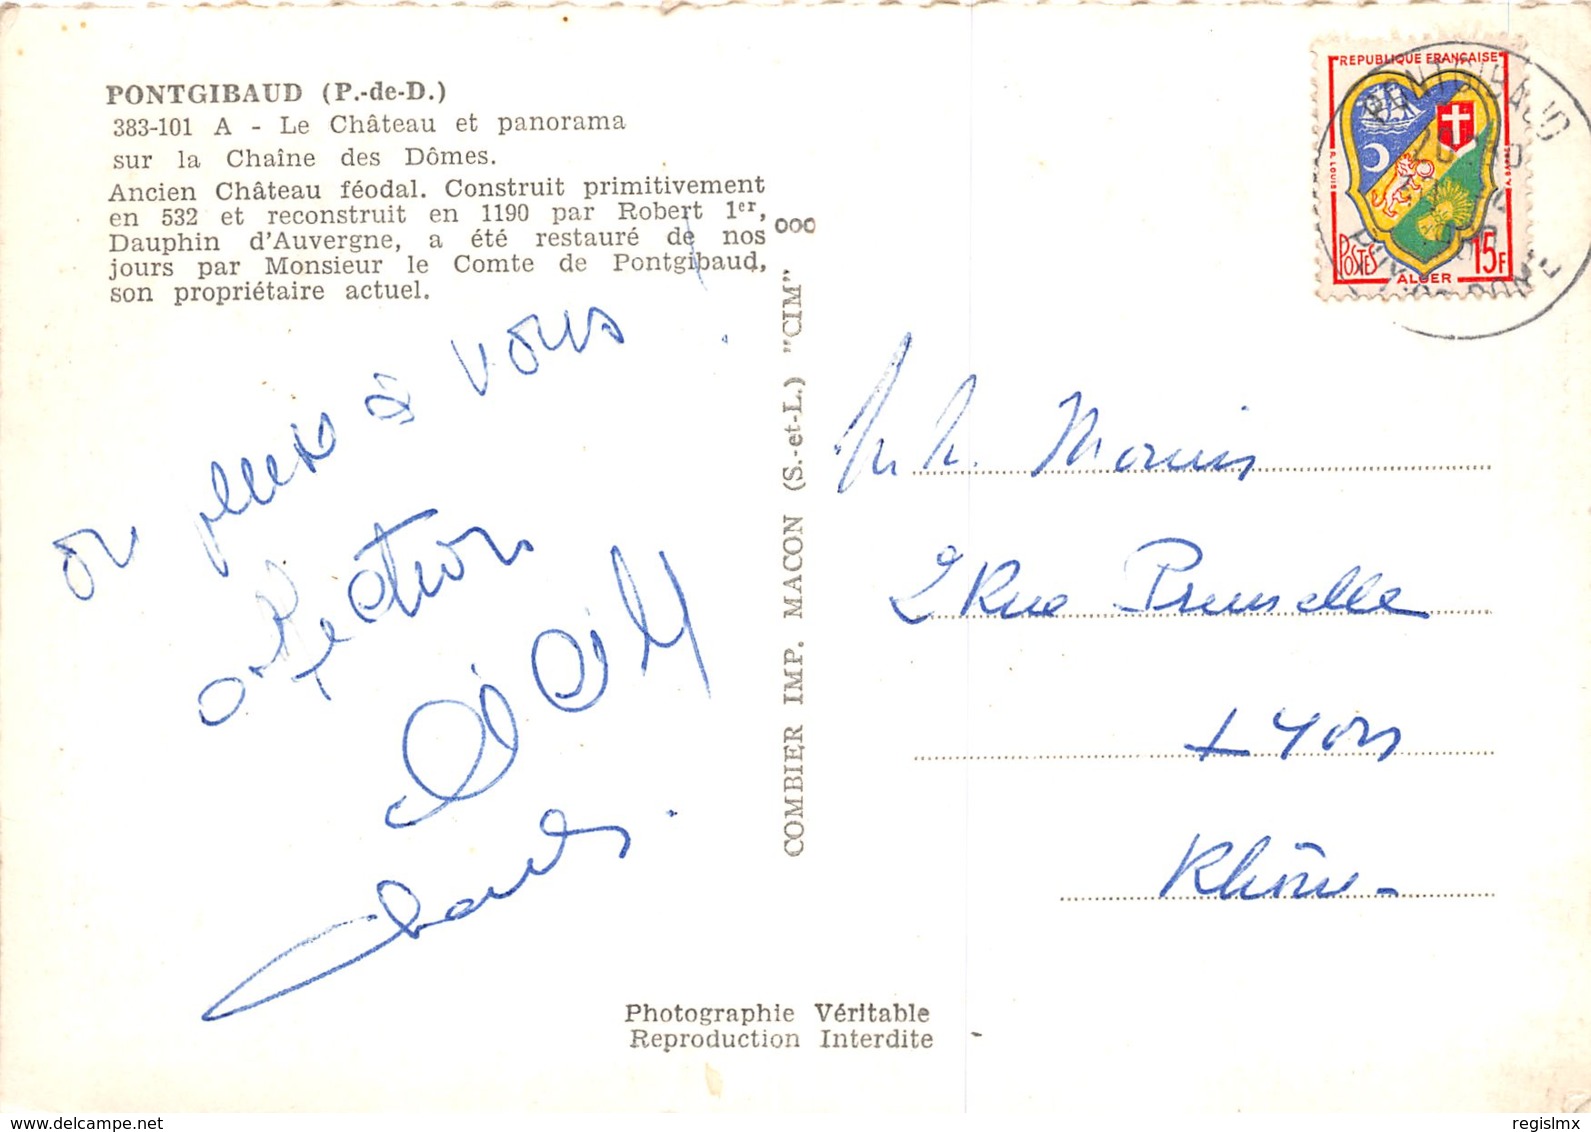 PONTGIBAUD (P.-de-D.)
383-101 A - Le Château et panorama
sur la Chaîne des Dômes.
Ancien Château féodal. Construit primitivement
en 532 et reconstruit en 1190 par Robert 1er,
Dauphin d'Auvergne, a été restauré de nos
jours par Monsieur le Comte de Pontgibaud,
son propriétaire actuel.
ooo
on pense à vous !
affection
Charles.
COMBIER IMP. MACON (S.-et-L.) "CIM"
REPUBLIQUE FRANÇAISE
POSTES
15F
ALGER
PONTGIBAUD
PUY-DE-DOME
2 Rue Prunelle
Lyon
Rhône-
Photographie Véritable
Reproduction Interdite
regislmx